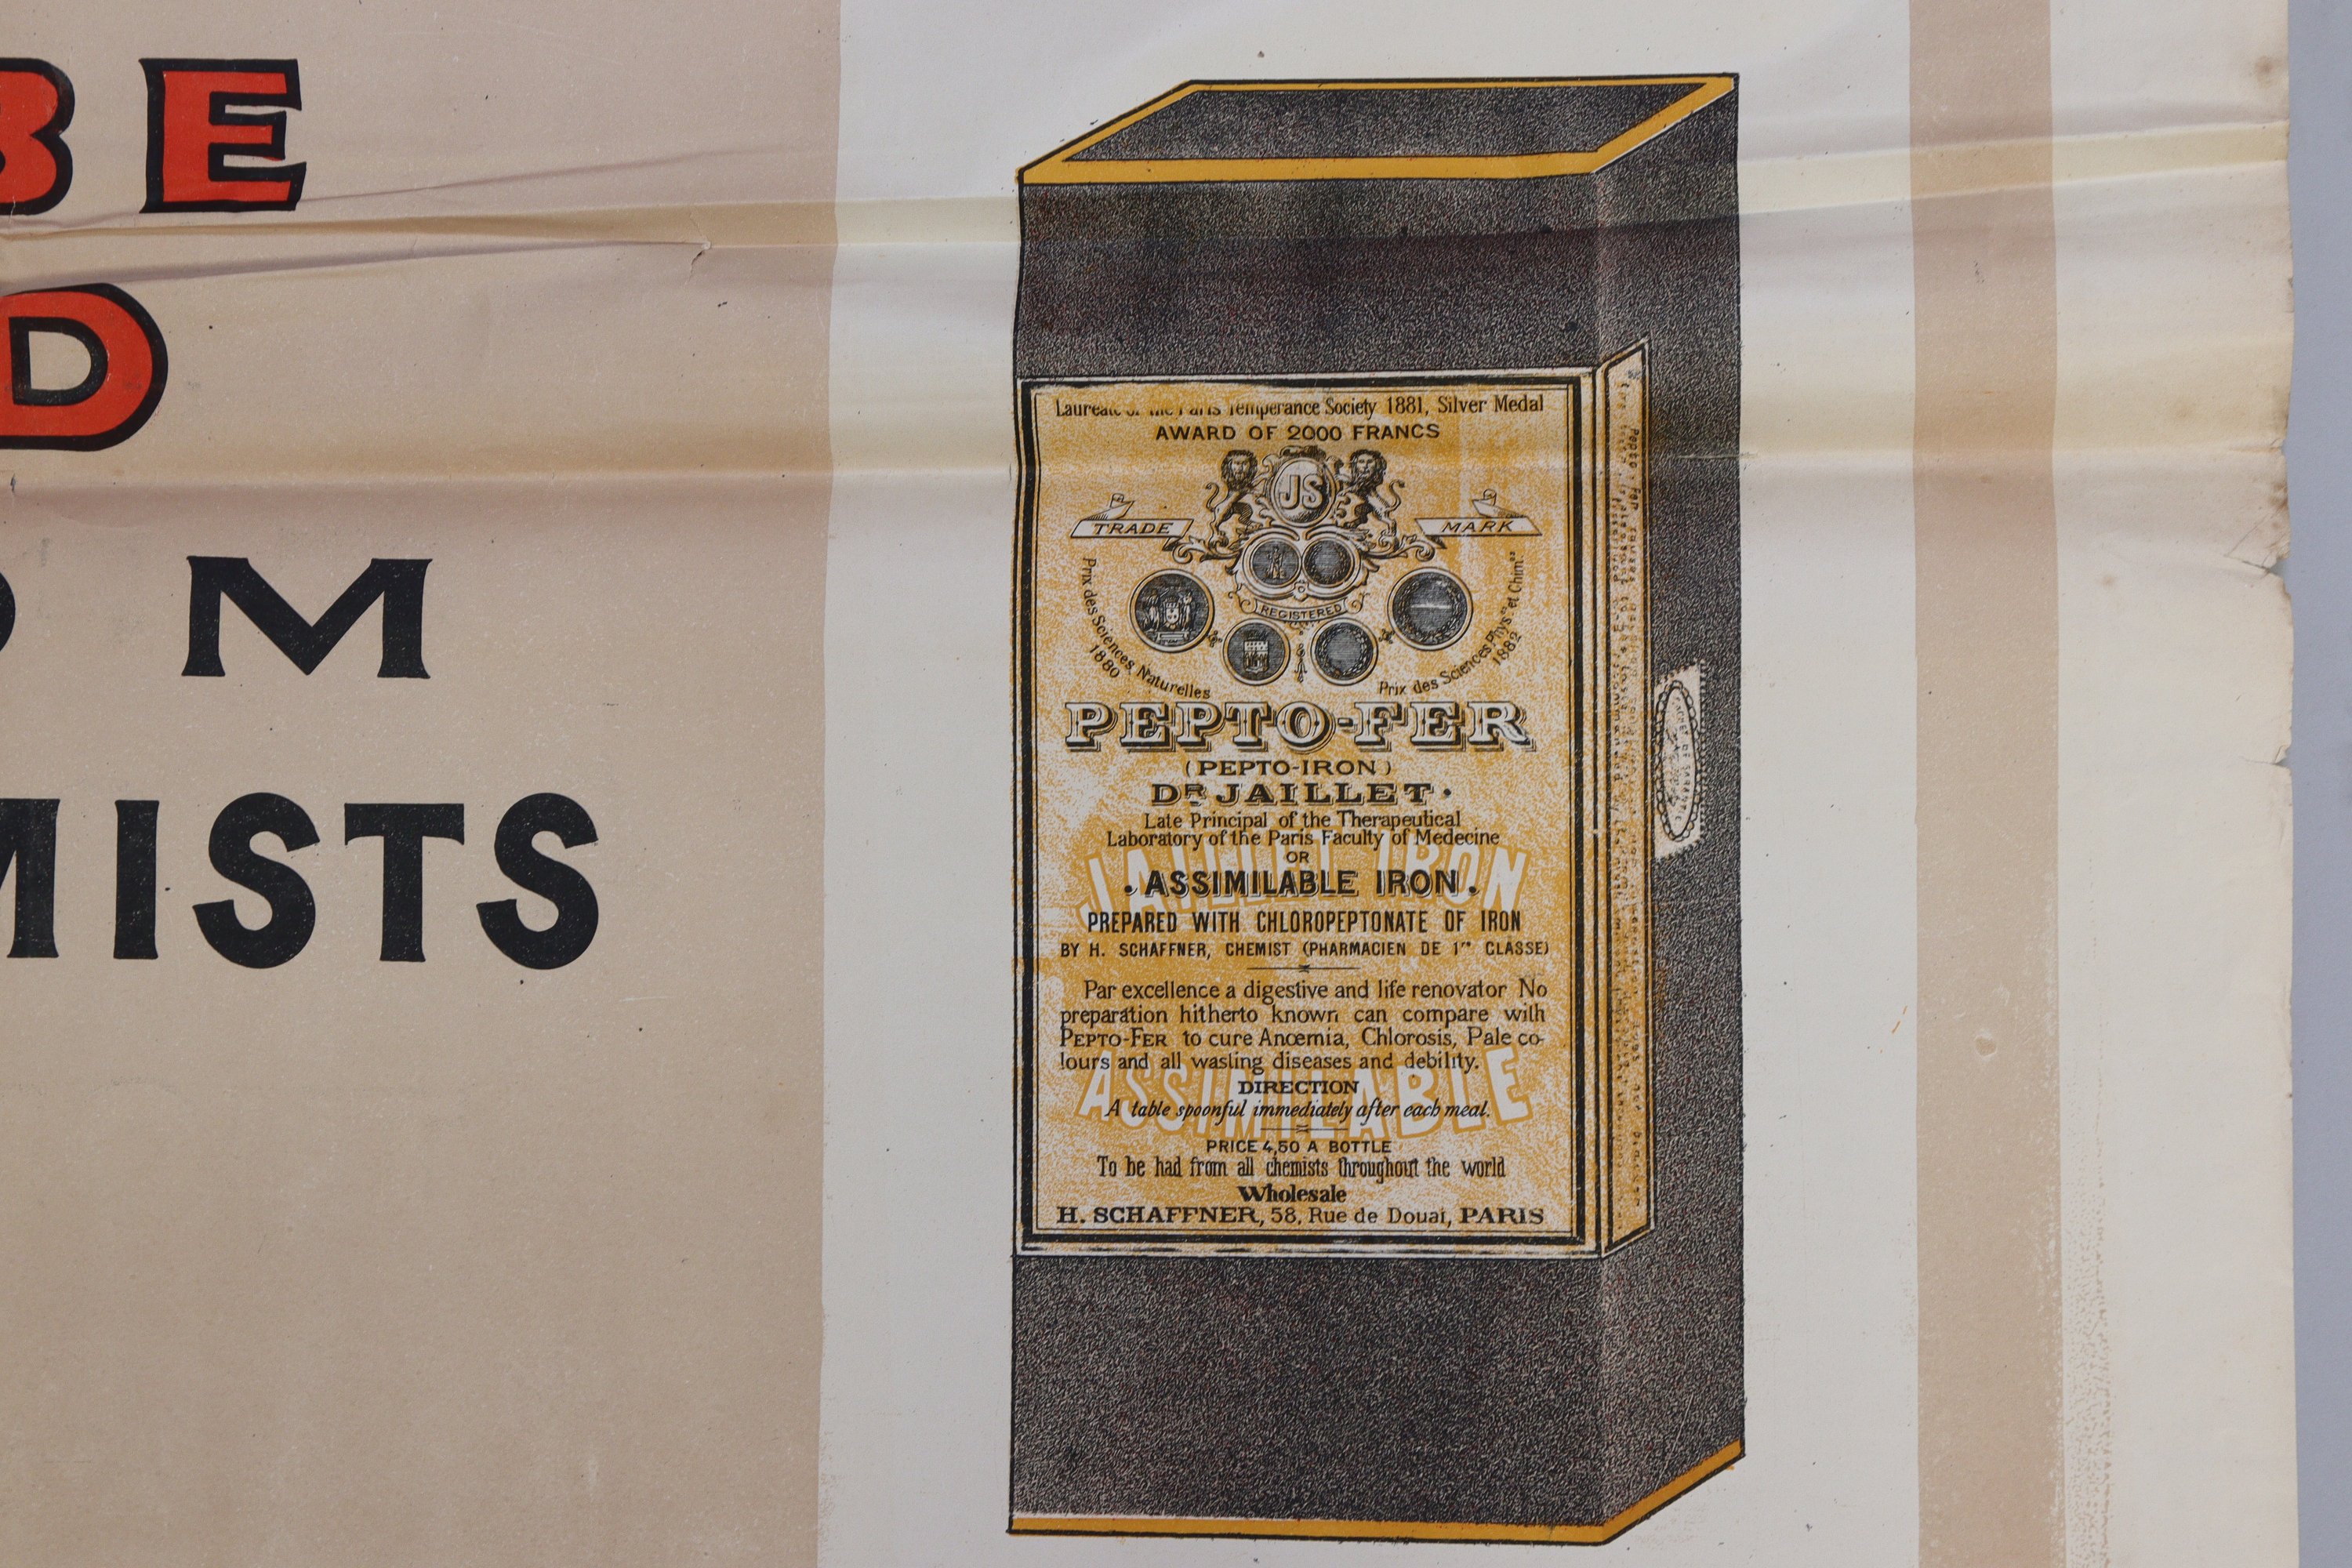 BE
D
M
MISTS
Laureate of the Paris Temperance Society 1881, Silver Medal
AWARD OF 2000 FRANCS
JS
TRADE MARK
REGISTERED
Prix des Sciences Naturelles
1880
Prix des Sciences Phys.es et Chim.es
1882
PEPTO-FER
(PEPTO-IRON)
DR JAILLET.
Late Principal of the Therapeutical
Laboratory of the Paris Faculty of Medecine
OR
. ASSIMILABLE IRON .
JAILLET IRON
PREPARED WITH CHLOROPEPTONATE OF IRON
BY H. SCHAFFNER, CHEMIST (PHARMACIEN DE 1re CLASSE)
Par excellence a digestive and life renovator No
preparation hitherto known can compare with
PEPTO-FER to cure Anœmia, Chlorosis, Pale co-
lours and all wasting diseases and debility.
ASSIMILABLE
DIRECTION
A table spoonful immediately after each meal.
PRICE 4,50 A BOTTLE
To be had from all chemists throughout the world
Wholesale
H. SCHAFFNER, 58, Rue de Douai, PARIS